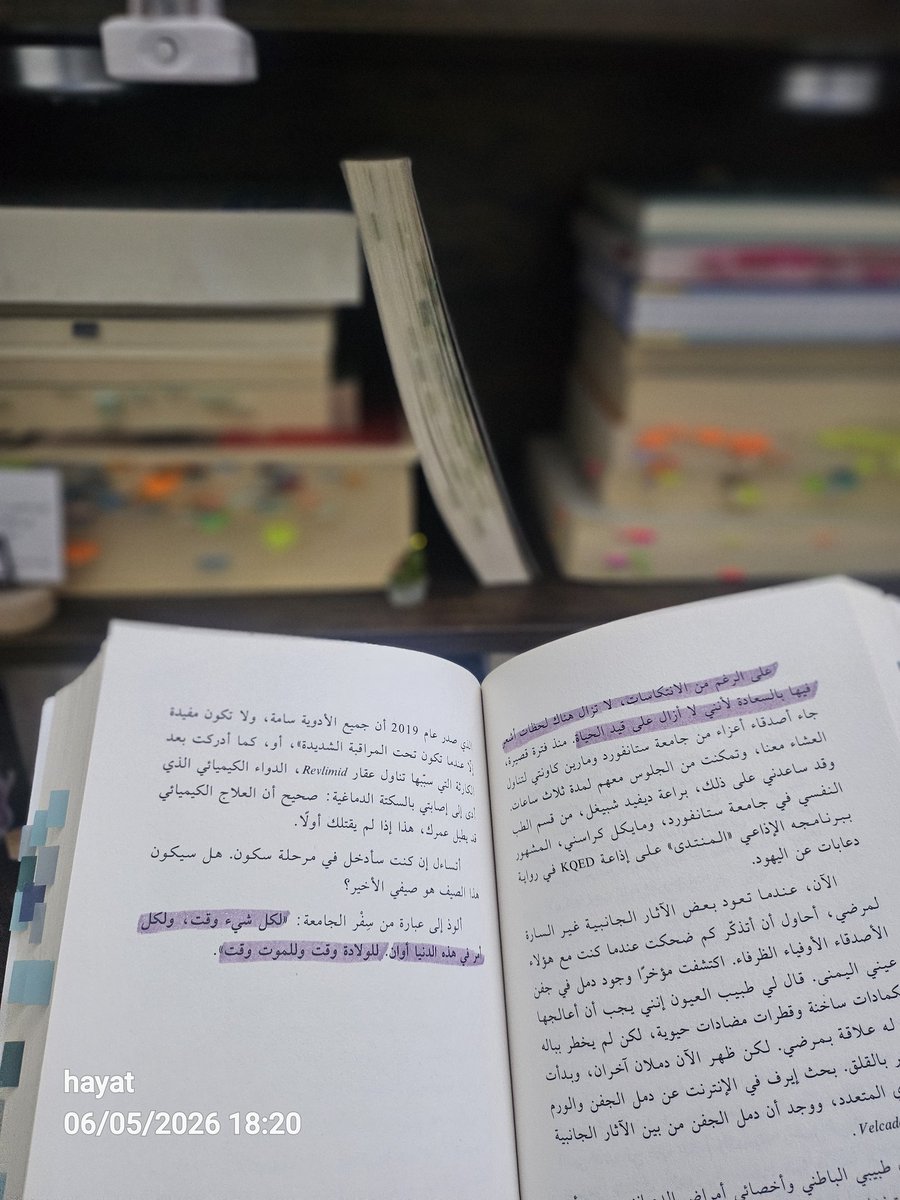 على الرغم من الانتكاسات، لا تزال هناك لحظات أشعر
فيها بالسعادة لأنني لا أزال على قيد الحياة. منذ فترة قصيرة،
جاء أصدقاء أعزاء من جامعة ستانفورد ومارين كاونتي لتناول
العشاء معنا، وتمكنت من الجلوس معهم لمدة ثلاث ساعات.
وقد ساعدني على ذلك، براعة ديفيد شبيغل، من قسم الطب
النفسي في جامعة ستانفورد، ومايكل كراسني، المشهور
ببرنامجه الإذاعي «المنتدى» على إذاعة KQED في رواية
دعابات عن اليهود.
الآن، عندما تعود بعض الآثار الجانبية غير السارة
لمرضي، أحاول أن أتذكّر كم ضحكت عندما كنت مع هؤلاء
الأصدقاء الأوفياء الظرفاء. اكتشفت مؤخرًا وجود دمل في جفن
عيني اليمنى. قال لي طبيب العيون إنني يجب أن أعالجها
كمادات ساخنة وقطرات مضادات حيوية، لكن لم يخطر بباله
له علاقة بمرضي. لكن ظهر الآن دملان آخران، وبدأت
بالقلق. بحث إيرف في الإنترنت عن دمل الجفن والورم
المتعدد، ووجد أن دمل الجفن من بين الآثار الجانبية
طبيبي الباطني وأخصائي أمراض
الذي صدر عام 2019 أن جميع الأدوية سامة، ولا تكون مفيدة
إلا عندما تكون تحت المراقبة الشديدة»، أو، كما أدركت بعد
الكارثة التي سبّبها تناول عقار Revlimid، الدواء الكيميائي الذي
أدى إلى إصابتي بالسكتة الدماغية: صحيح أن العلاج الكيميائي
قد يطيل عمرك، هذا إذا لم يقتلك أولًا.
أتساءل إن كنت سأدخل في مرحلة سكون. هل سيكون
هذا الصيف هو صيفي الأخير؟
ألوذ إلى عبارة من سِفْر الجامعة: «لكل شيء وقت، ولكل
أمر في هذه الدنيا أوان. للولادة وقت وللموت وقت».
hayat
06/05/2026 18:20